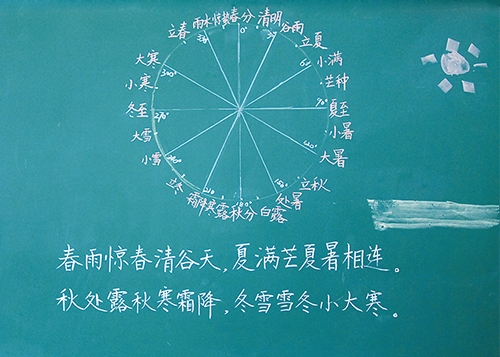 春分
清明
谷雨
立夏
小满
芒种
夏至
小暑
大暑
立秋
处暑
白露
秋分
寒露
霜降
立冬
小雪
大雪
冬至
小寒
大寒
立春
雨水
惊蛰
0°
30°
60°
90°
270°
300°
330°
春雨惊春清谷天，夏满芒夏暑相连。
秋处露秋寒霜降，冬雪雪冬小大寒。